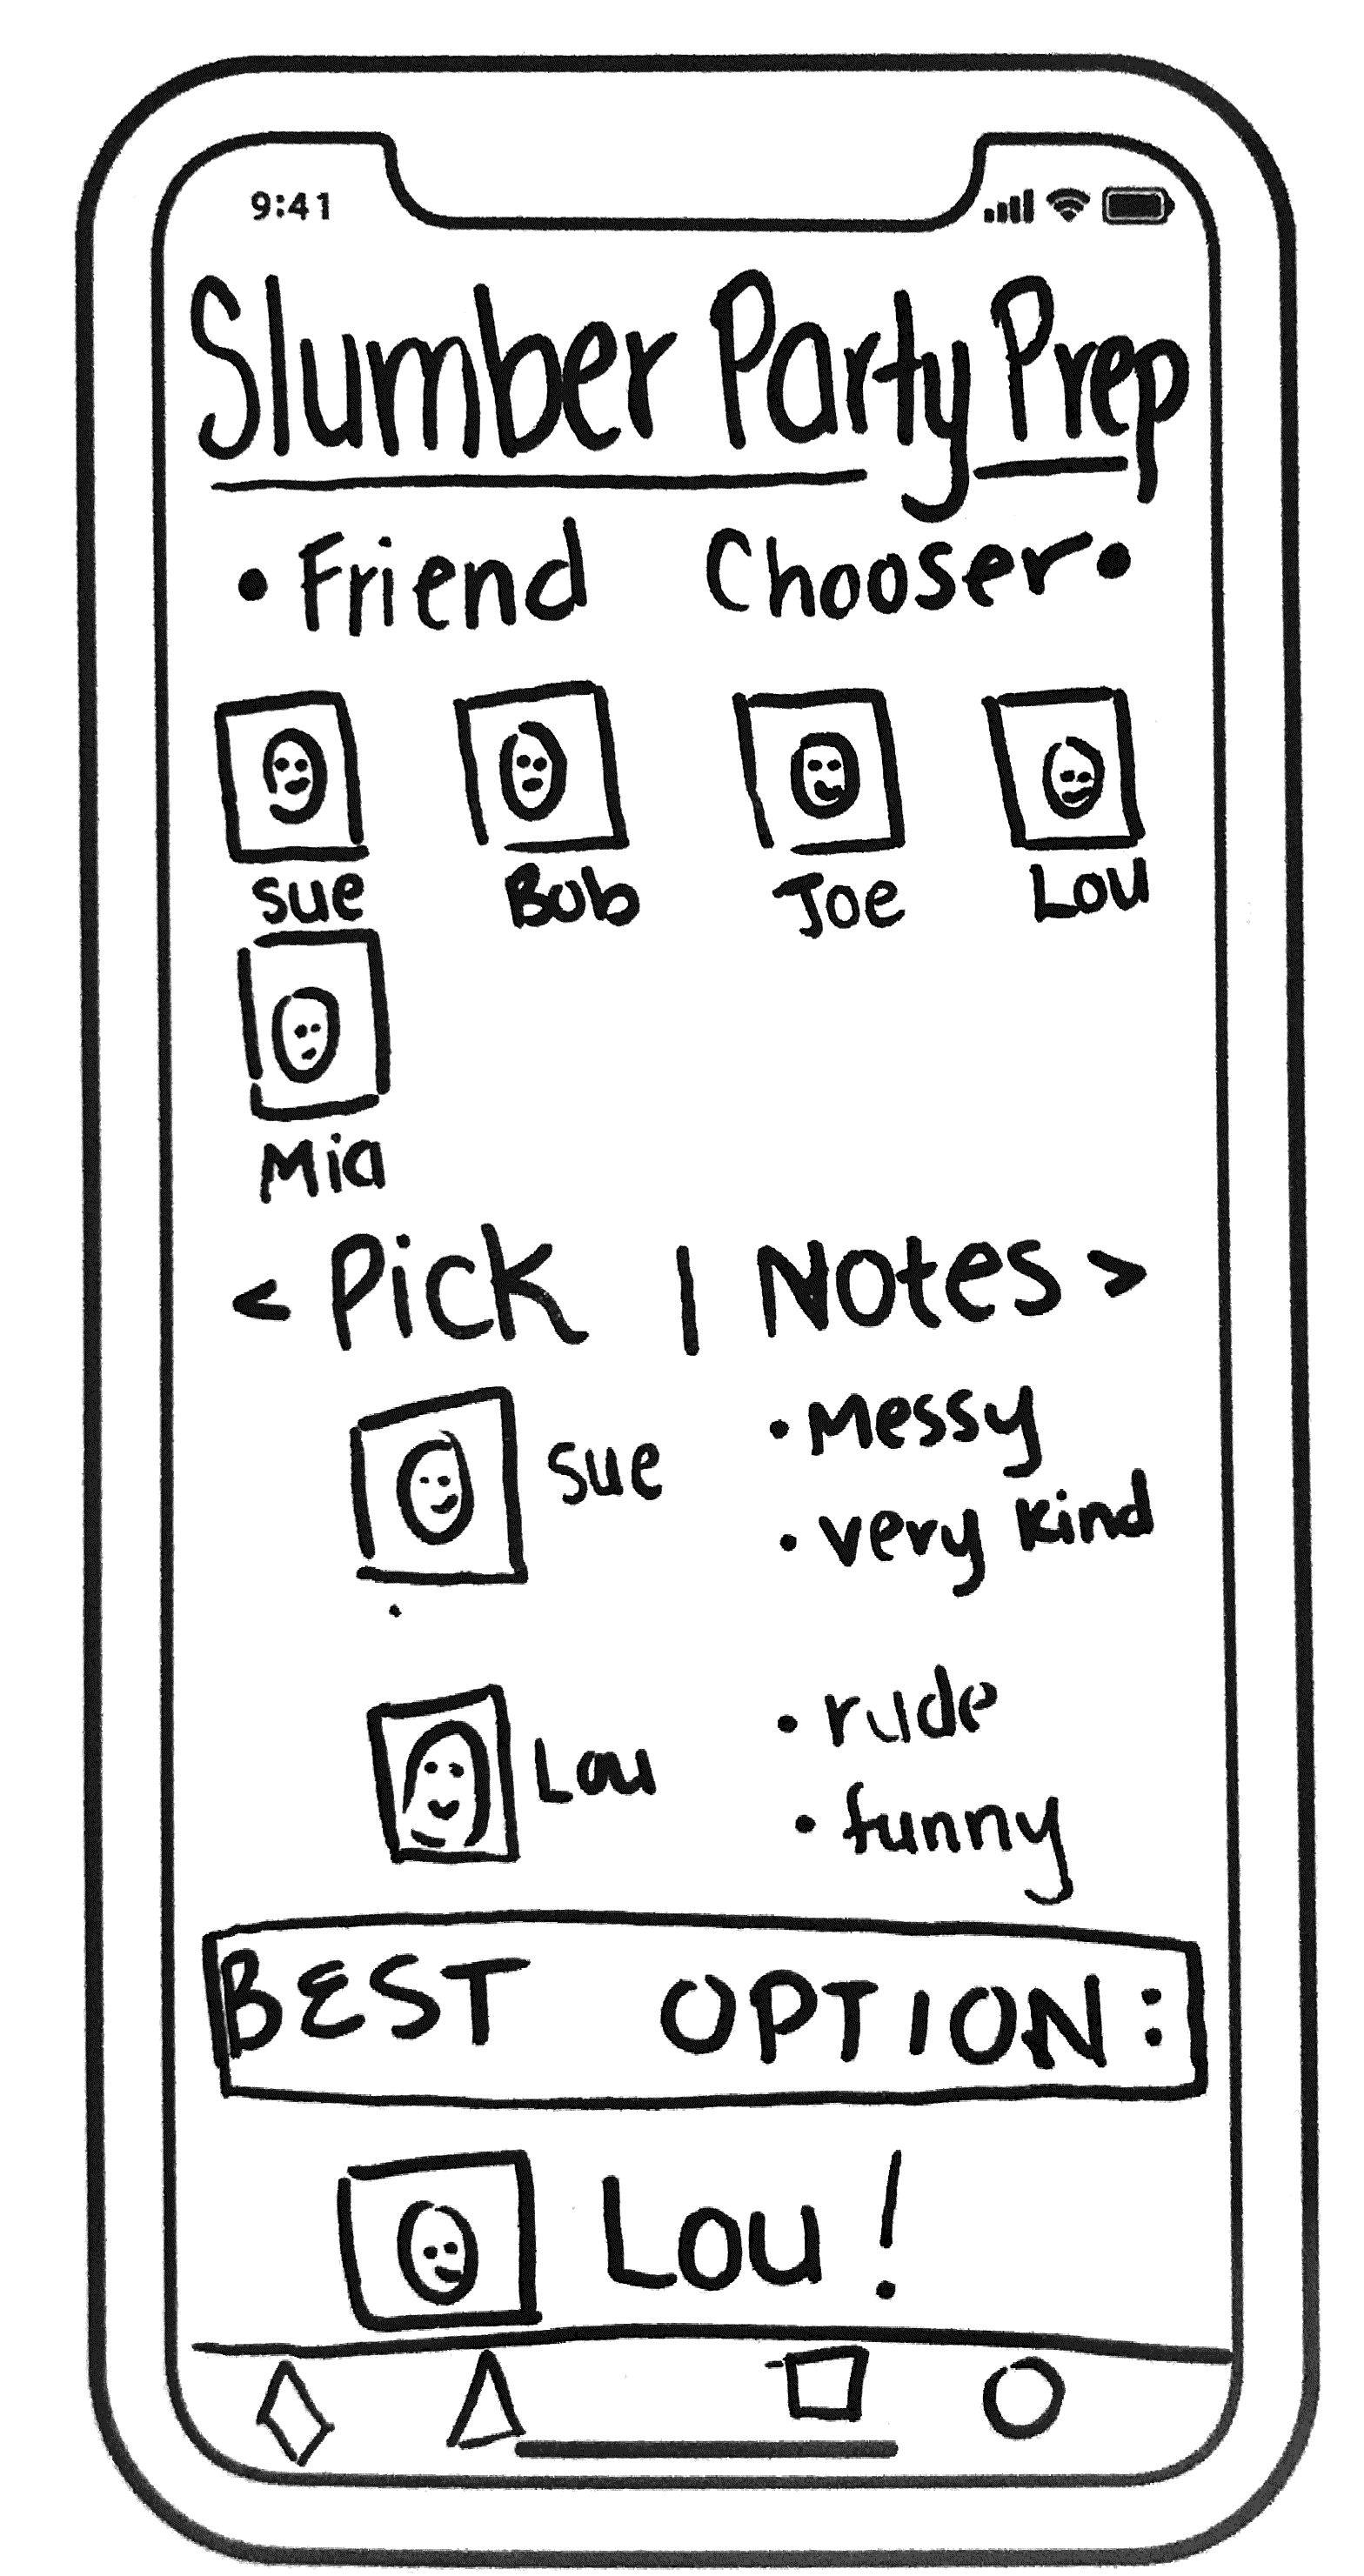 9:41
Slumber Party Prep
• Friend Chooser •
Sue Bob Joe Lou
Mia
< Pick | Notes >
Sue
• Messy
• very kind
Lou
• rude
• funny
BEST OPTION:
Lou!